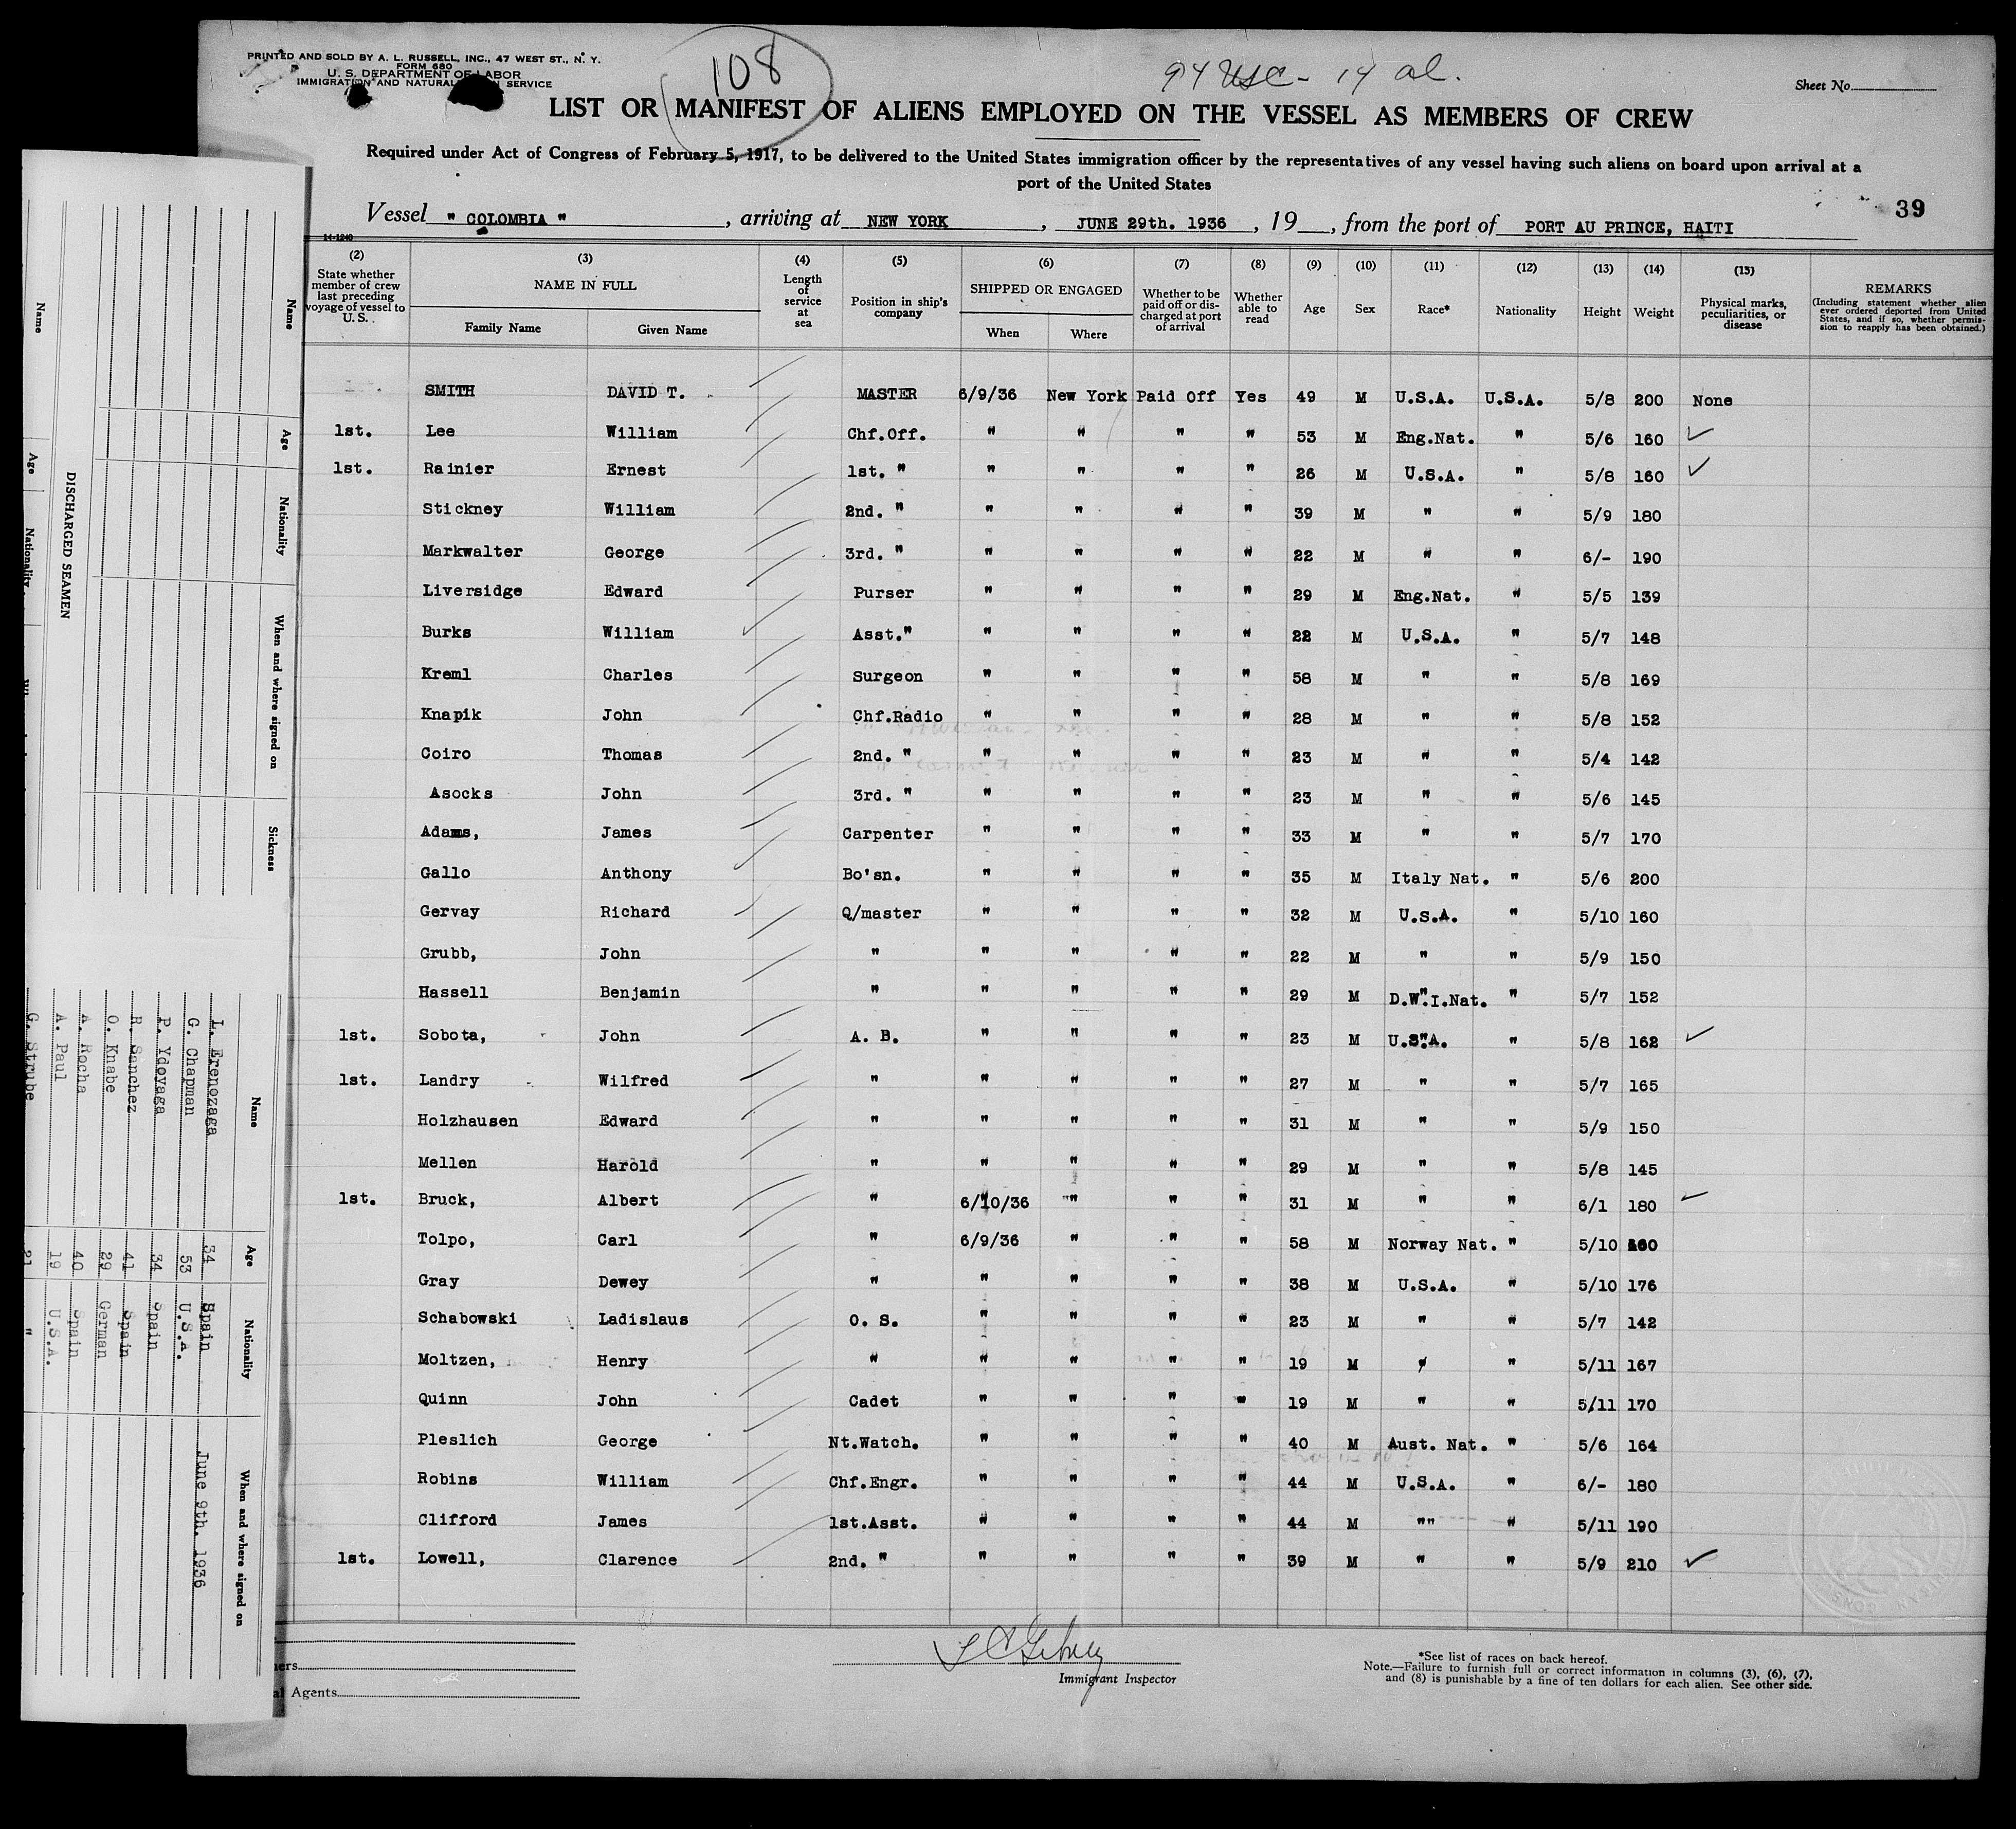 PRINTED AND SOLD BY A. L. RUSSELL, INC., 47 WEST ST., N. Y.
FORM 680
U. S. DEPARTMENT OF LABOR
IMMIGRATION AND SERVICE
108
94 USC - 14 al.
Sheet No.
LIST OR MANIFEST OF ALIENS EMPLOYED ON THE VESSEL AS MEMBERS OF CREW
Required under Act of Congress of February 5, 1917, to be delivered to the United States immigration officer by the representatives of any vessel having such aliens on board upon arrival at a
port of the United States
39
Vessel " COLOMBIA " , arriving at NEW YORK , JUNE 29th. 1936 , 19 , from the port of PORT AU PRINCE, HAITI
14-1240
(2) (3) (4) (5) (6) (7) (8) (9) (10) (11) (12) (13) (14) (15)
State whether member of crew last preceding voyage of vessel to U. S. NAME IN FULL Family Name Given Name Length of service at sea Position in ship's company SHIPPED OR ENGAGED When Where Whether to be paid off or discharged at port of arrival Whether able to read Age Sex Race* Nationality Height Weight Physical marks, peculiarities, or disease REMARKS (Including statement whether alien ever ordered deported from United States, and if so, whether permission to reapply has been obtained.)
SMITH DAVID T. MASTER 6/9/36 New York Paid Off Yes 49 M U.S.A. U.S.A. 5/8 200 None
1st. Lee William Chf.Off. " " " " 53 M Eng.Nat. " 5/6 160 ✓
1st. Rainier Ernest 1st. " " " " " 26 M U.S.A. " 5/8 160 ✓
Stickney William 2nd. " " " " " 39 M " " 5/9 180
Markwalter George 3rd. " " " " " 22 M " " 6/- 190
Liversidge Edward Purser " " " " 29 M Eng.Nat. " 5/5 139
Burks William Asst." " " " " 22 M U.S.A. " 5/7 148
Kreml Charles Surgeon " " " " 58 M " " 5/8 169
Knapik John Chf.Radio " " " " 28 M " " 5/8 152
Coiro Thomas 2nd. " " " " " 23 M " " 5/4 142
Asocks John 3rd. " " " " " 23 M " " 5/6 145
Adams, James Carpenter " " " " 33 M " " 5/7 170
Gallo Anthony Bo'sn. " " " " 35 M Italy Nat. " 5/6 200
Gervay Richard Q/master " " " " 32 M U.S.A. " 5/10 160
Grubb, John " " " " " 22 M " " 5/9 150
Hassell Benjamin " " " " " 29 M D.W.I.Nat. " 5/7 152
1st. Sobota, John A. B. " " " " 23 M U.S.A. " 5/8 162 ✓
1st. Landry Wilfred " " " " " 27 M " " 5/7 165
Holzhausen Edward " " " " " 31 M " " 5/9 150
Mellen Harold " " " " " 29 M " " 5/8 145
1st. Bruck, Albert " 6/10/36 " " " 31 M " " 6/1 180 ✓
Tolpo, Carl " 6/9/36 " " " 58 M Norway Nat. " 5/10
Gray Dewey " " " " " 38 M U.S.A. " 5/10 176
Schabowski Ladislaus O. S. " " " " 23 M " " 5/7 142
Moltzen, Henry " " " " " 19 M " " 5/11 167
Quinn John Cadet " " " " 19 M " " 5/11 170
Pleslich George Nt.Watch. " " " " 40 M Aust. Nat. " 5/6 164
Robins William Chf.Engr. " " " " 44 M U.S.A. " 6/- 180
Clifford James 1st.Asst. " " " " 44 M "" " 5/11 190
1st. Lowell, Clarence 2nd. " " " " " 39 M " " 5/9 210 ✓
Agents
Immigrant Inspector
*See list of races on back hereof.
Note.—Failure to furnish full or correct information in columns (3), (6), (7),
and (8) is punishable by a fine of ten dollars for each alien. See other side.
Name Age Nationality When and where signed on Sickness
DISCHARGED SEAMEN
Name Age Nationality
Name Age Nationality When and where signed on
L. Erenozaga 34 Spain June 9th. 1936
G. Chapman 53 U.S.A.
P. Ydoyaga 34 Spain
R. Sanchez 41 Spain
O. Knabe 29 German
A. Rocha 40 Spain
A. Paul 19 U.S.A.
G. Strube 21 "